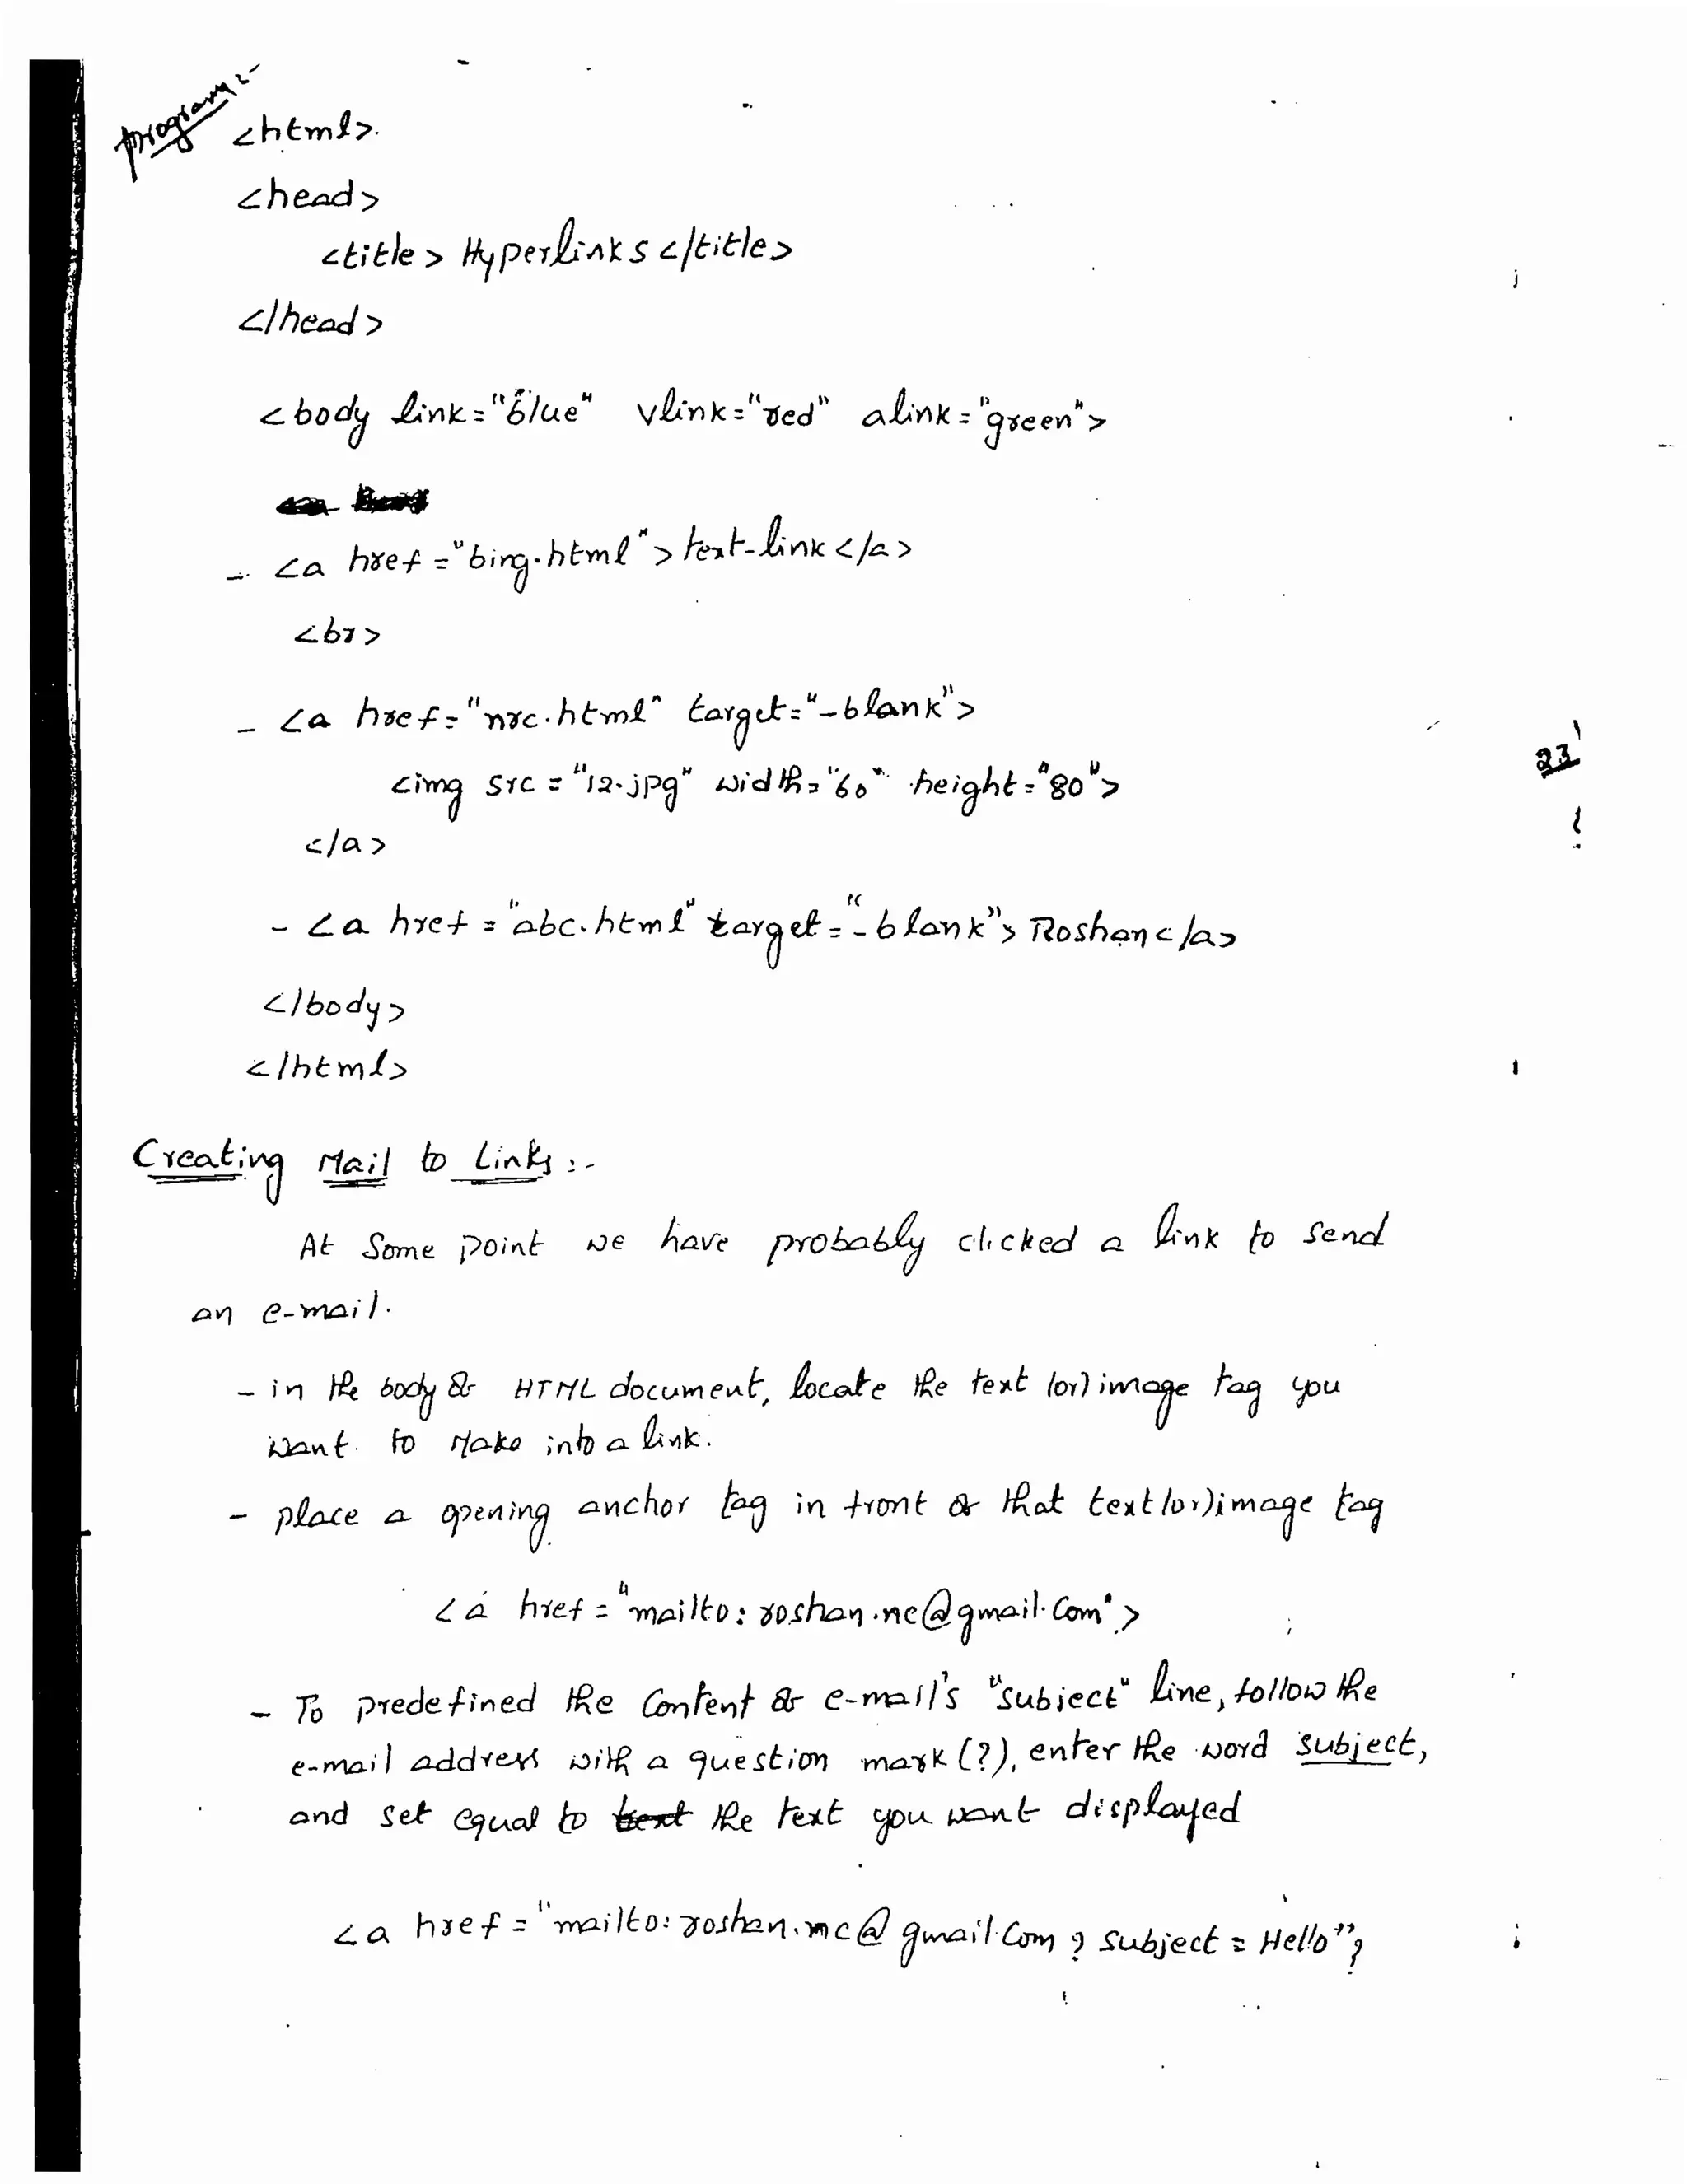 program:-
<html>
<head>
<title> Hyperlinks </title>
</head>
<body link="blue" vlink="red" alink="green">
- <a href="bing.html"> text-link </a>
<br>
- <a href="nrc.html" target="_blank">
<img src="12.jpg" width="60" height="80">
23
</a>
- <a href="abc.html" target="_blank"> Roshan </a>
</body>
</html>
Creating Mail to Links :-
At Some point we have probably clicked a link to send
an e-mail.
- in the body of HTML document, locate the text (or) image tag you
want to Make into a link.
- place a opening anchor tag in front of that text (or) image tag
<a href="mailto: roshan.nc@gmail.com">
- To predefined the Content of e-mail's "subject" line, follow the
e-mail address with a question mark (?), enter the word subject,
and set equal to text the text you want displayed
<a href="mailto: roshan.mc@gmail.com ? subject = Hello">